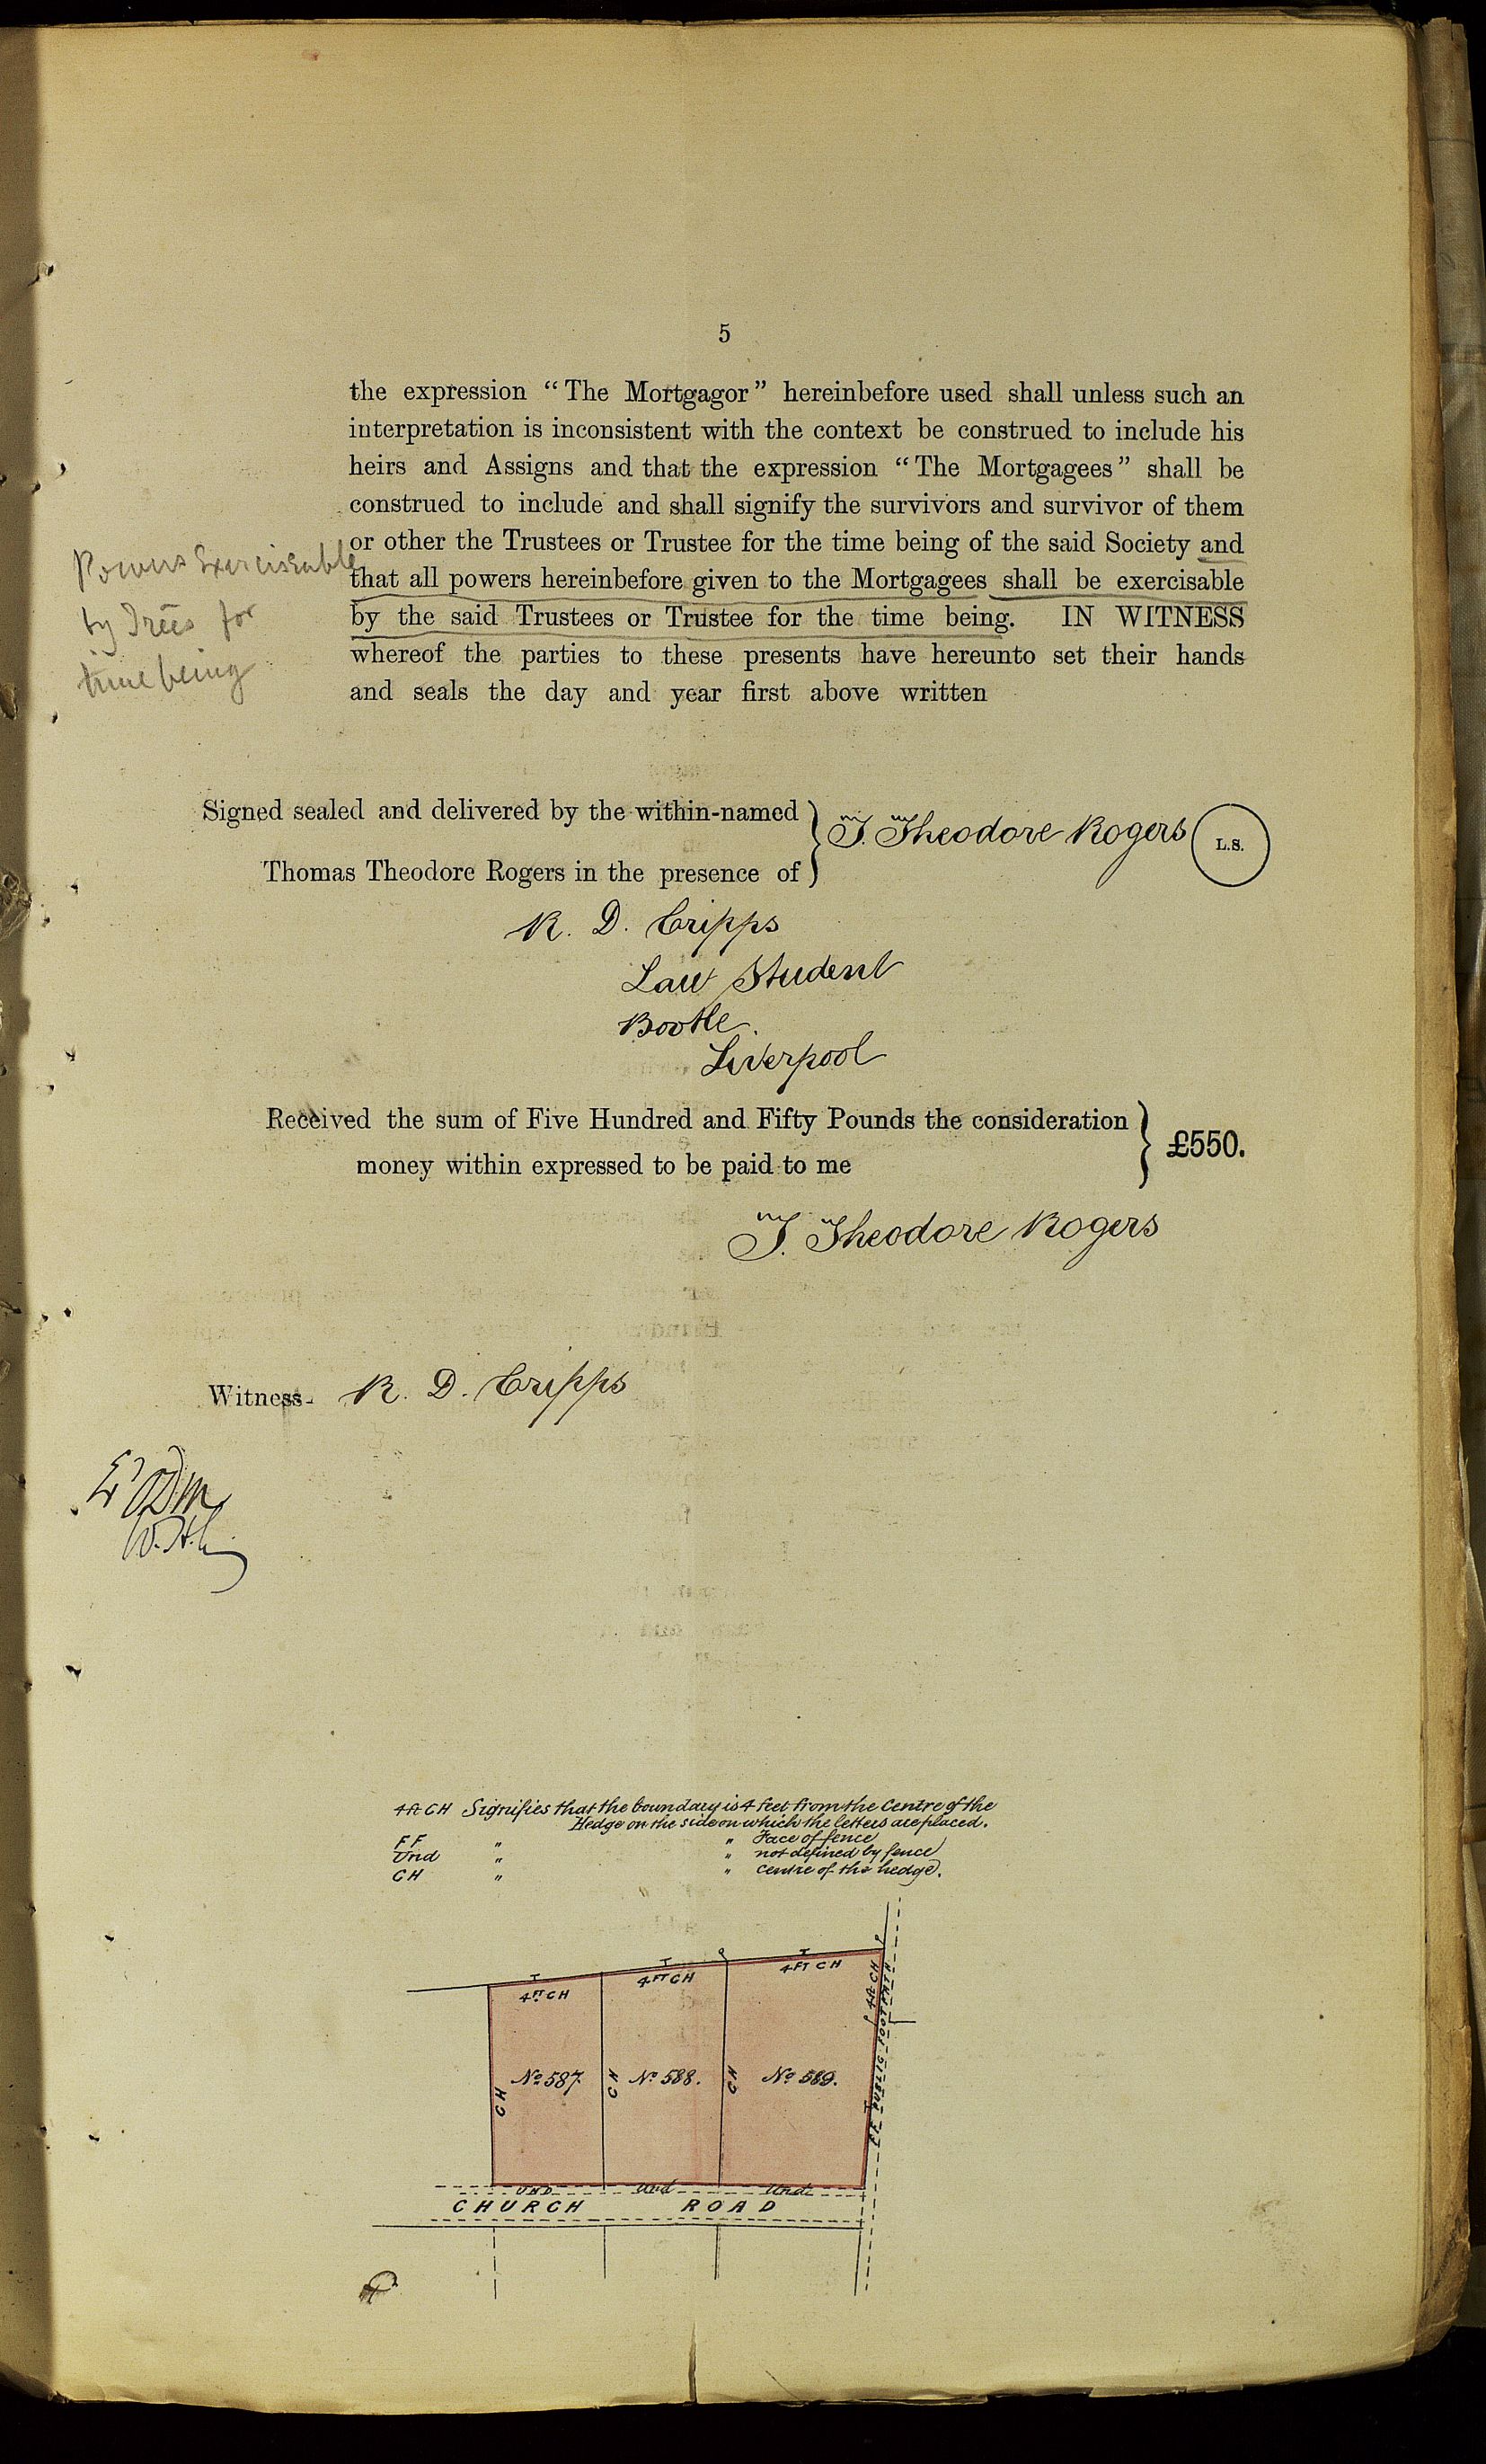 5
the expression “The Mortgagor” hereinbefore used shall unless such an
interpretation is inconsistent with the context be construed to include his
heirs and Assigns and that the expression “The Mortgagees” shall be
construed to include and shall signify the survivors and survivor of them
or other the Trustees or Trustee for the time being of the said Society and
that all powers hereinbefore given to the Mortgagees shall be exercisable
by the said Trustees or Trustee for the time being. IN WITNESS
whereof the parties to these presents have hereunto set their hands
and seals the day and year first above written
Powers Exerciseable
by Trees for
time being
Signed sealed and delivered by the within-named
Thomas Theodore Rogers in the presence of
T. Theodore Rogers
L.S.
R. D. Cripps
Law Student
Bootle.
Liverpool
Received the sum of Five Hundred and Fifty Pounds the consideration
money within expressed to be paid to me
£550.
T. Theodore Rogers
Witness- R. D. Cripps
4ft CH Signifies that the boundary is 4 feet from the Centre of the
Hedge on the side on which the letters are placed.
FF " " Face of fence
Und " " not defined by fence
CH " " centre of the hedge.
4FT CH
4FT CH
4FT CH
4ft CH
No 587.
No 588.
No 589.
CH
CH
CH
FF PUBLIC FOOTPATH
UND
Und
Und
CHURCH ROAD